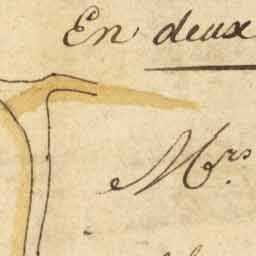 En deux
Mrs.